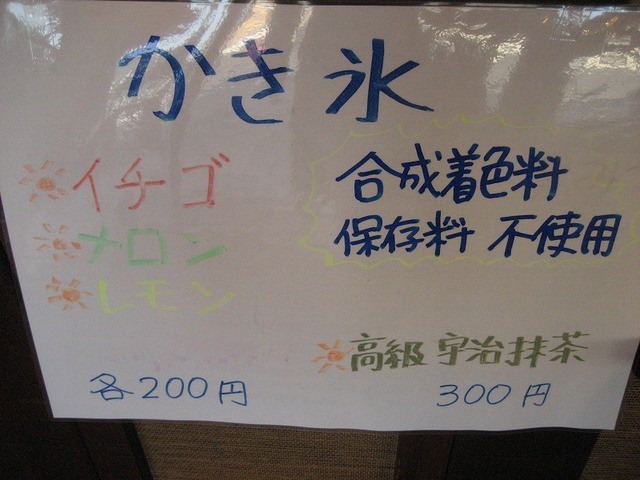 かき氷
イチゴ
メロン
レモン
各200円
合成着色料
保存料 不使用
高級宇治抹茶
300円